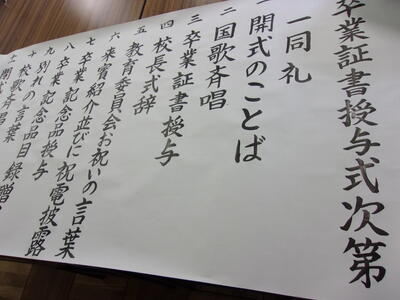 卒業証書授与式次第
一同礼
一 開式のことば
二 国歌斉唱
三 卒業証書授与
四 校長式辞
五 教育委員会お祝いの言葉
六 来賓紹介並びに祝電披露
七 卒業記念品授与
八 卒業記念品目録贈
九 別れの言葉
十 校歌斉唱